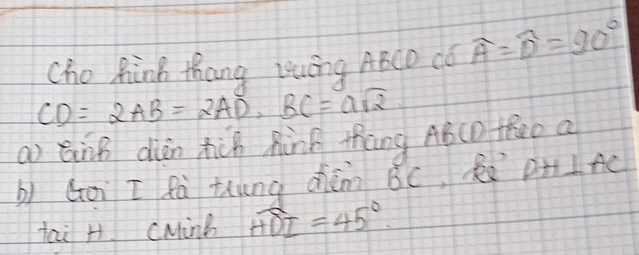 Cho hình thang vuông ABCD có Â = D̂ = 90°
CD = 2AB = 2AD, BC = a√2
a) Tính diện tích hình thang ABCD theo a
b) Gọi I là trung điểm BC, kẻ DH ⊥ AC
tại H. CMinh HDI = 45°.